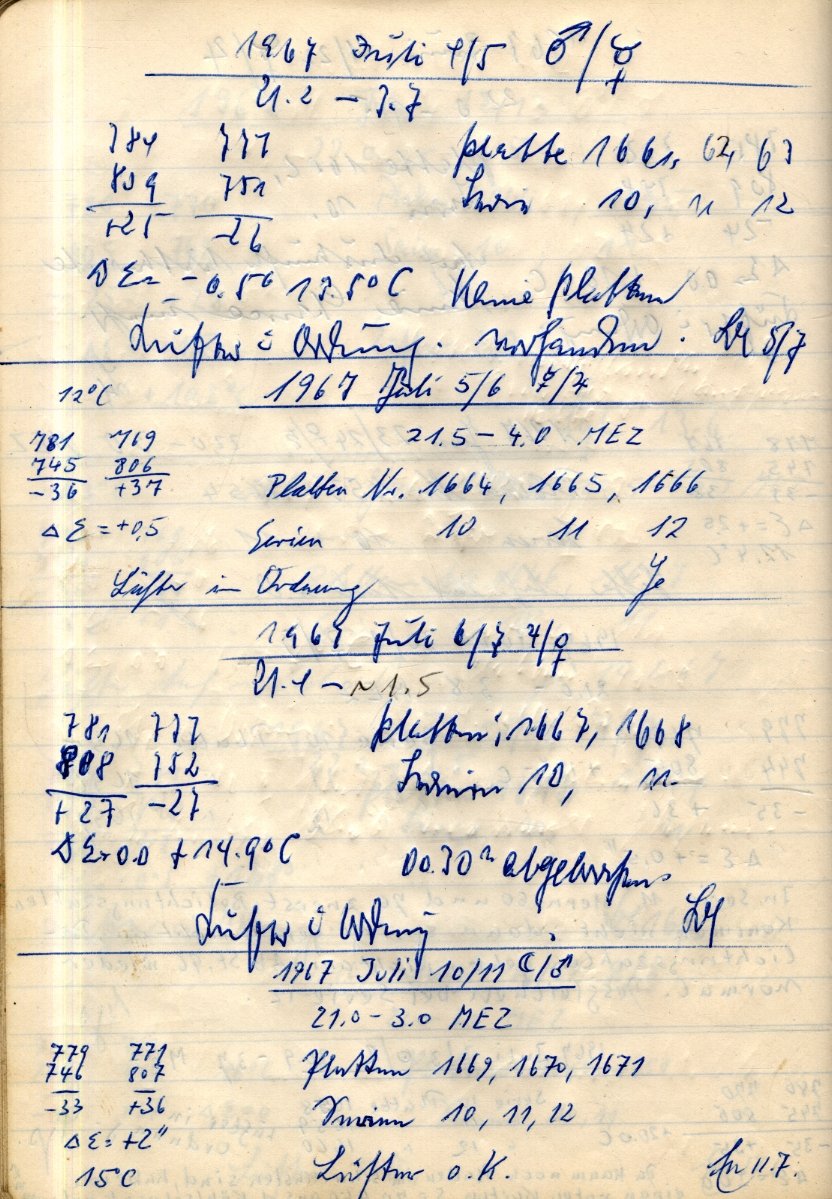 1967 Juli 4/5 ♂/☿
21.2 – 3.7
784 777 Platte 1661, 62, 63
809 751 Serie 10, 11 12
+25 -26
ΔΣ= -0.5° 13.5°C Keine Platten
Lüfter i Ordnung. vorhanden. 5/7
12°C 1967 Juli 5/6 ☿/♃
781 769 21.5 – 4.0 MEZ
745 806
-36 +37 Platten Nr. 1664, 1665, 1666
ΔΣ = +0,5 Serien 10 11 12
Lüfter in Ordnung
1967 Juli 6/7 ♃/♀
21.1 – ~1.5
781 777 Platten: 1667, 1668
808 752 Serien 10, 11
+27 -27
ΔΣ=0.0 +14.9°C 00.30 abgebrochen
Lüfter i Ordnung
1967 Juli 10/11 ☾/♂
21.0 – 3.0 MEZ
779 771 Platten 1669, 1670, 1671
746 807
-33 +36 Serien 10, 11, 12
ΔΣ= +2"
15°C Lüfter o.K. 11.7.